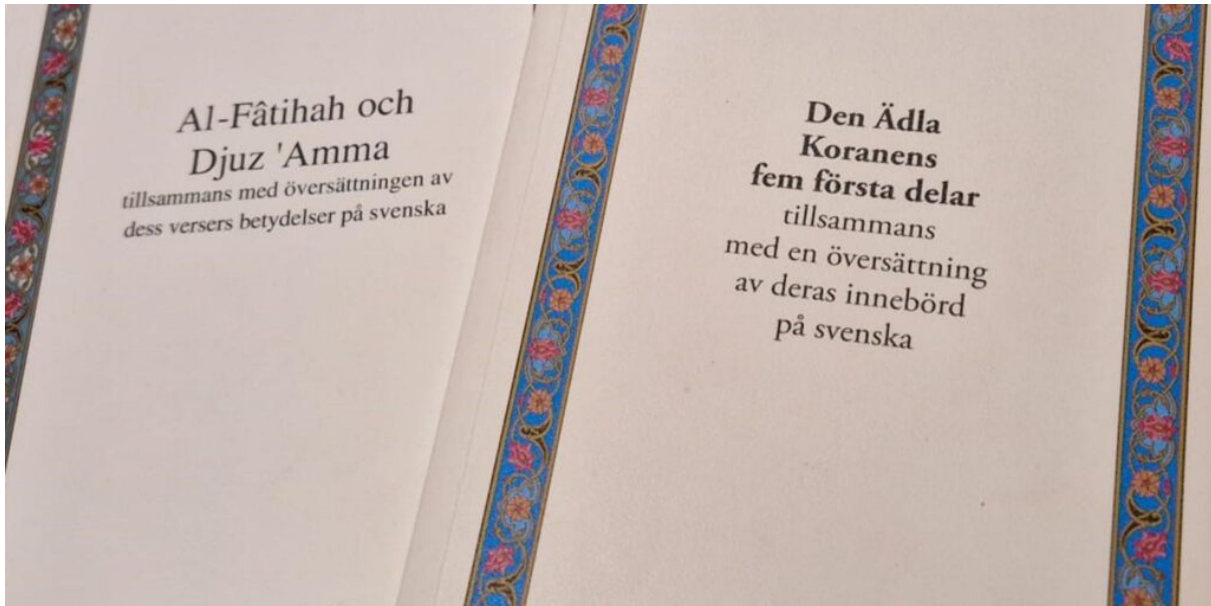 Al-Fâtihah och
Djuz 'Amma
tillsammans med översättningen av
dess versers betydelser på svenska
Den Ädla
Koranens
fem första delar
tillsammans
med en översättning
av deras innebörd
på svenska